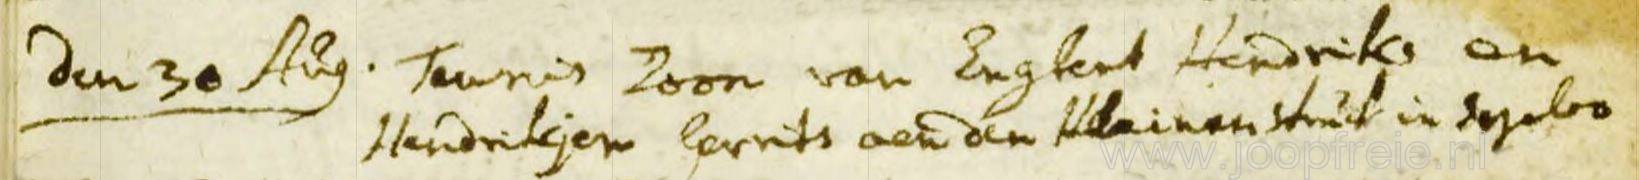 den 30 Aug. Teunis Zoon van Engbert Hendriks en
Hendrikjen Gerrits aen den Kleinen in
www.joopfreie.nl